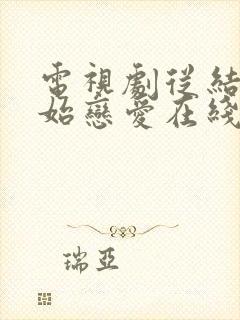 電視劇從結
始戀愛在綫
瑞亞